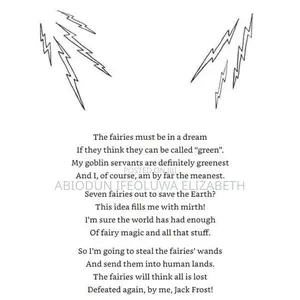 The fairies must be in a dream
If they think they can be called "green".
My goblin servants are definitely greenest
And I, of course, am by far the meanest.
POSTED ON
ABIODUN IFEOLUWA ELIZABETH
Seven fairies out to save the Earth?
This idea fills me with mirth!
I'm sure the world has had enough
Of fairy magic and all that stuff.
So I'm going to steal the fairies' wands
And send them into human lands.
The fairies will think all is lost
Defeated again, by me, Jack Frost!